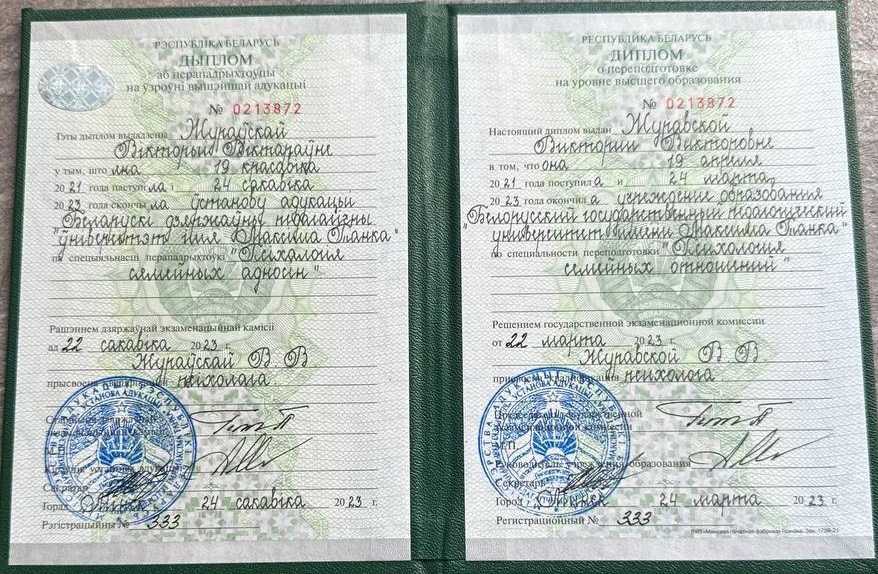 РЭСПУБЛІКА БЕЛАРУСЬ
ДЫПЛОМ
аб перападрыхтоўцы
на ўзроўні вышэйшай адукацыі
№ 0213872
Гэты дыплом выдадзены Жураўскай
Вікторыі Віктараўне
у тым, што яна 19 красавіка
20 21 года паступіла і 24 сакавіка
20 23 года скончыла ўстанову адукацыі
"Беларускі дзяржаўны педагагічны
ўніверсітэт імя Максіма Танка"
па спецыяльнасці перападрыхтоўкі "Псіхалогія
сямейных адносін"
Рашэннем дзяржаўнай экзаменацыйнай камісіі
ад 22 сакавіка 2023 г.
Жураўскай В В
псіхолага
Сакратар
Горад Мінск 24 сакавіка 20 23 г.
Рэгістрацыйны № 333
РЕСПУБЛИКА БЕЛАРУСЬ
ДИПЛОМ
о переподготовке
на уровне высшего образования
№ 0213872
Настоящий диплом выдан Журавской
Виктории Викторовне
в том, что она 19 апреля
20 21 года поступила и 24 марта
20 23 года окончила учреждение образования
"Белорусский государственный педагогический
университет имени Максима Танка"
по специальности переподготовки "Психология
семейных отношений"
Решением государственной экзаменационной комиссии
от 22 марта 2023 г.
Журавской В В
присвоена квалификация психолога
Председатель государственной
экзаменационной комиссии
М.П.
Руководитель учреждения образования
Секретарь
Город Минск 24 марта 20 23 г.
Регистрационный № 333